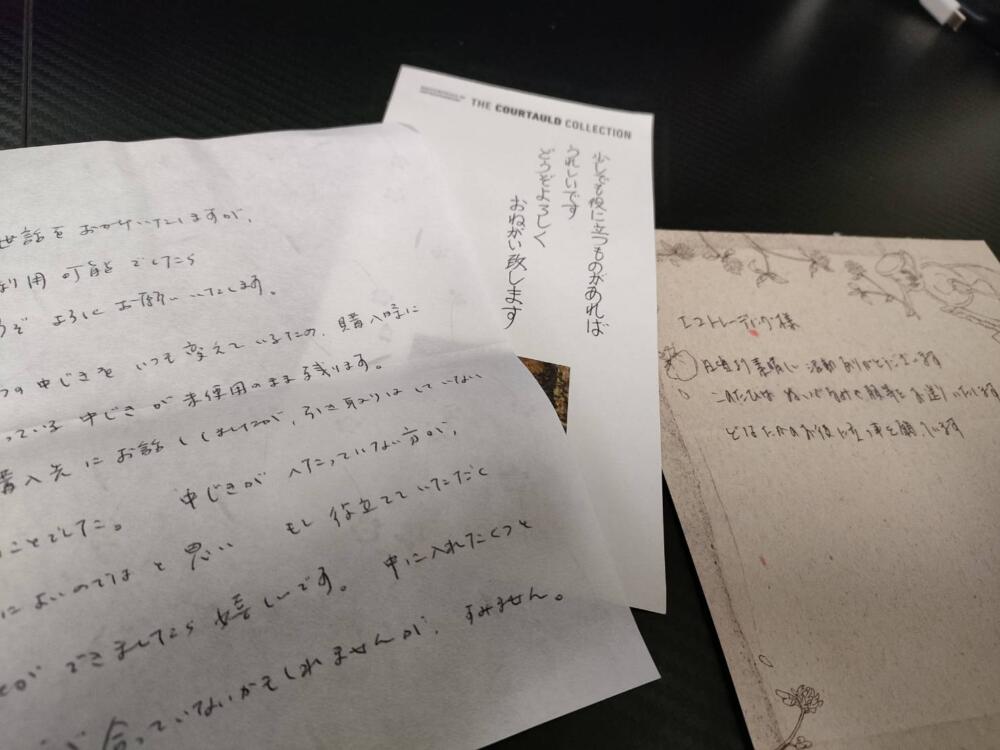 世話をおかけいたしますが、
り用可能でしたら
ぞよろしくお願いいたします。
の中じきをいつも変えているため、購入時に
っている中じきが未使用のまま残ります。
購入先にお話ししましたが、引き取りはしていない
ことでした。 中じきがへたっていない方が、
によいのではと思い もし役立てていただく
ができましたら嬉しいです。 中に入れたくつと
合っていないかもしれませんが、すみません。
THE COURTAULD COLLECTION
少しでも役に立つものがあれば
うれしいです
どうぞよろしく
おねがい致します
エコトレーディング様
日頃より素晴しい活動ありがとうございます
このたびは
お送りいたします
どなたかのお役に立つ事を願っています